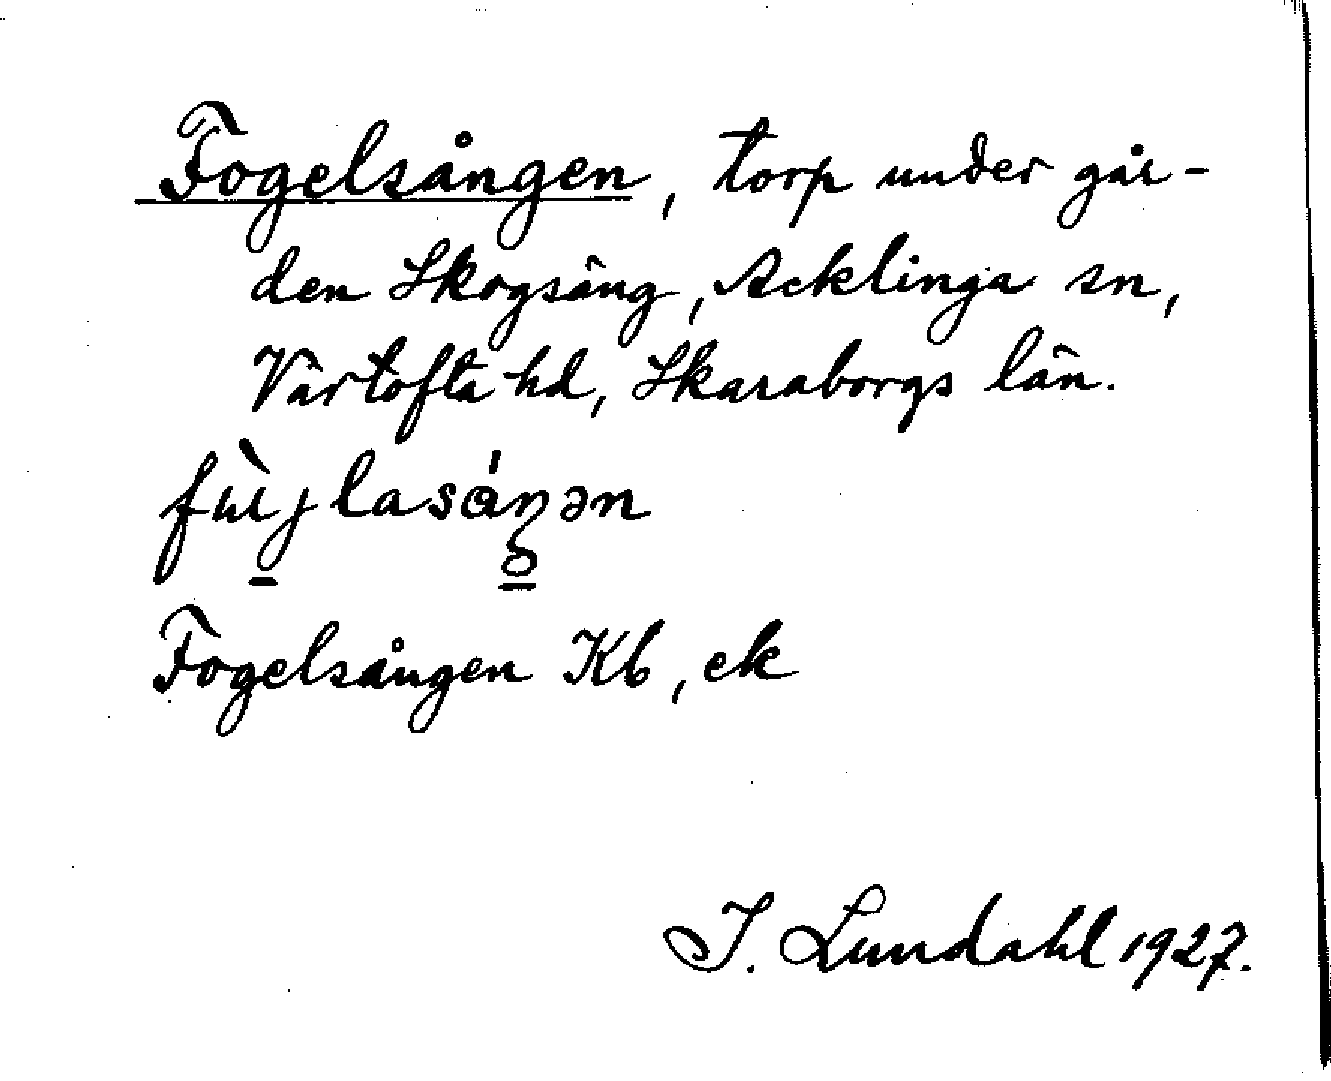 Fogelsången, torp under går-
den Skogsäng, Acklinga sn,
Vartofta hd, Skaraborgs län.
Fogelsången Kb, ek
I. Lundahl 1927.